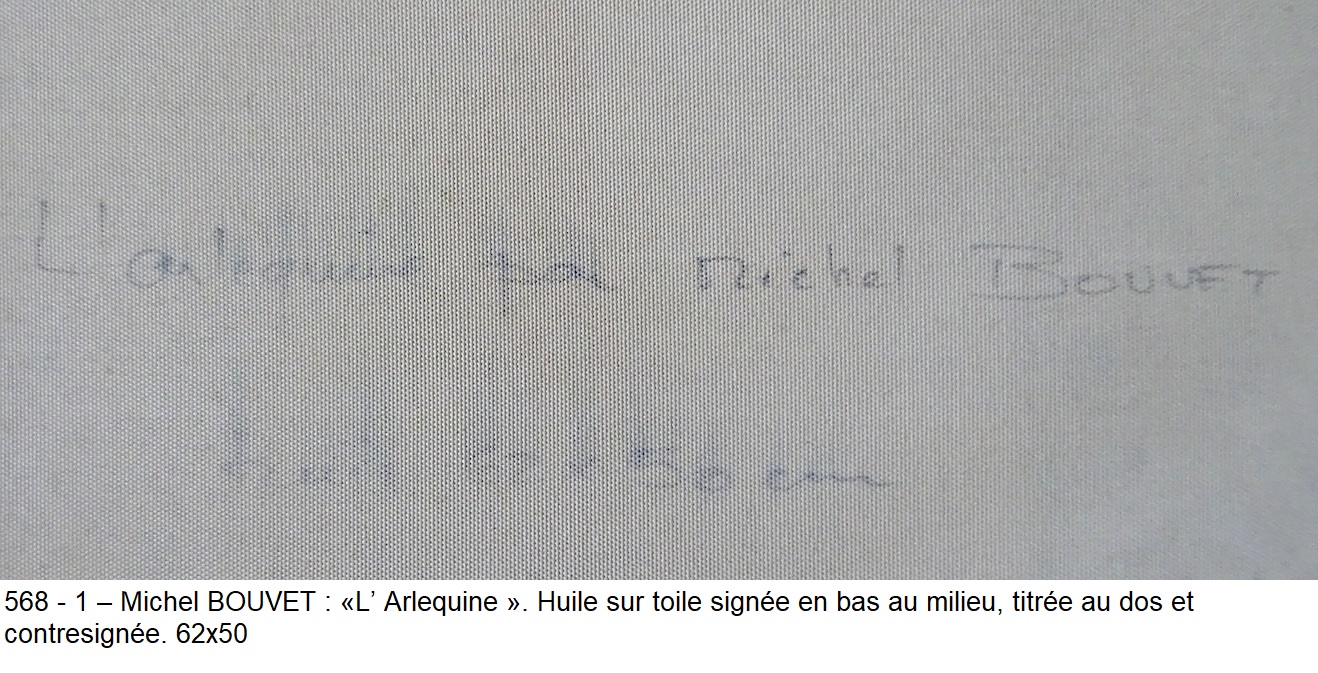 L'arlequine par Michel BOUVET
50 cm
568 - 1 – Michel BOUVET : «L’ Arlequine ». Huile sur toile signée en bas au milieu, titrée au dos et
contresignée. 62x50